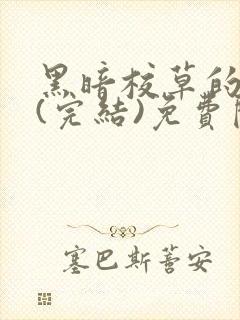 黑暗校草的
(完結)免費
塞巴斯蒈安